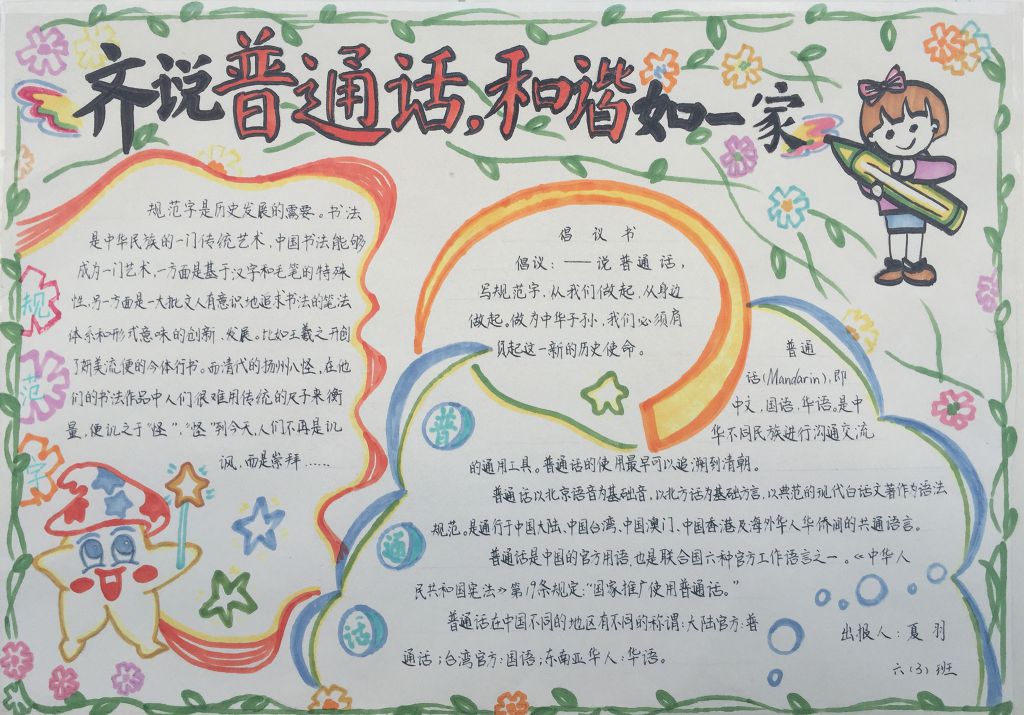 齐说普通话,和谐如一家
规范字
规范字是历史发展的需要。书法
是中华民族的一门传统艺术,中国书法能够
成为一门艺术,一方面是基于汉字和毛笔的特殊
性,另一方面是一大批文人有意识地追求书法的笔法
体系和形式意味的创新、发展。比如王羲之开创
了妍美流便的今体行书。而清代的扬州八怪,在他
们的书法作品中人们很难用传统的尺子来衡
量,便讥之于“怪”,“怪”到今天,人们不再是讥
讽,而是崇拜……
倡议书
倡议:——说普通话,
写规范字,从我们做起,从身边
做起。做为中华子孙,我们必须肩
负起这一新的历史使命。
普通话
普通
话(Mandarin),即
中文,国语,华语。是中
华不同民族进行沟通交流
的通用工具。普通话的使用最早可以追溯到清朝。
普通话以北京语音为基础音,以北方话为基础方言,以典范的现代白话文著作为语法
规范。是通行于中国大陆、中国台湾、中国澳门、中国香港及海外华人华侨间的共通语言。
普通话是中国的官方用语,也是联合国六种官方工作语言之一。《中华人
民共和国宪法》第19条规定:“国家推广使用普通话。”
普通话在中国不同的地区有不同的称谓:大陆官方:普
通话;台湾官方:国语;东南亚华人:华语。
出报人:夏羽
六(3)班